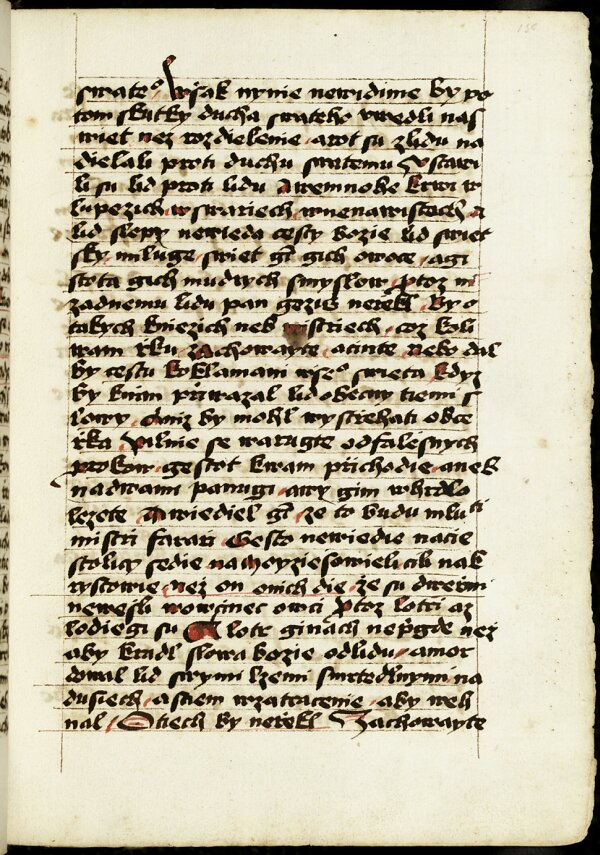 swateho Wssak nynie newidime by po
tom skutky ducha swateho wwedli nas
swiet nez rozdielenie a rot su z lidu na
dielali proti duchu swatemu Zstawi
li su lid proti lidu A wemnohe krwi w
lupezich w swariech w nenawistech a
lid slepy newieda cesty bozie lid swiet
sky miluge swiet gt gich owoce agi
stota gich mudrych smyslow protoz ni
zadnemu lidu pan gezis nerekl by o
takych kniezich neb mistriech coz koli
wam rku zachowayte a cinte nebo dal
by cestu k oklamani wseho swieta kdyz
by knim priwazal lid obecny tiemi s
lowy aniz by mohl wystrzehati obce
rka Pilnie se warugte od falesnych
prokow gestot kwam prichodie aneb
nad wami panugi awy gim w hrdlo
lezete A wiediel gt ze to budu mluti
mistri farari Gesto newiedie nacie
stolicy sedie na moyziesowieli cili nak
rystowie nez on onich die ze su dwermi
newesli wowcinec owci protoz lotri az
lodiegi su A lotr ginach neprigde nez
aby kradl slowa bozie od lidu a mor
dowal lid swymi lzemi smrtedlnymi na
dusiech a sciem wzatracenie aby weh
nal O tiech by nerekl Zachowayte